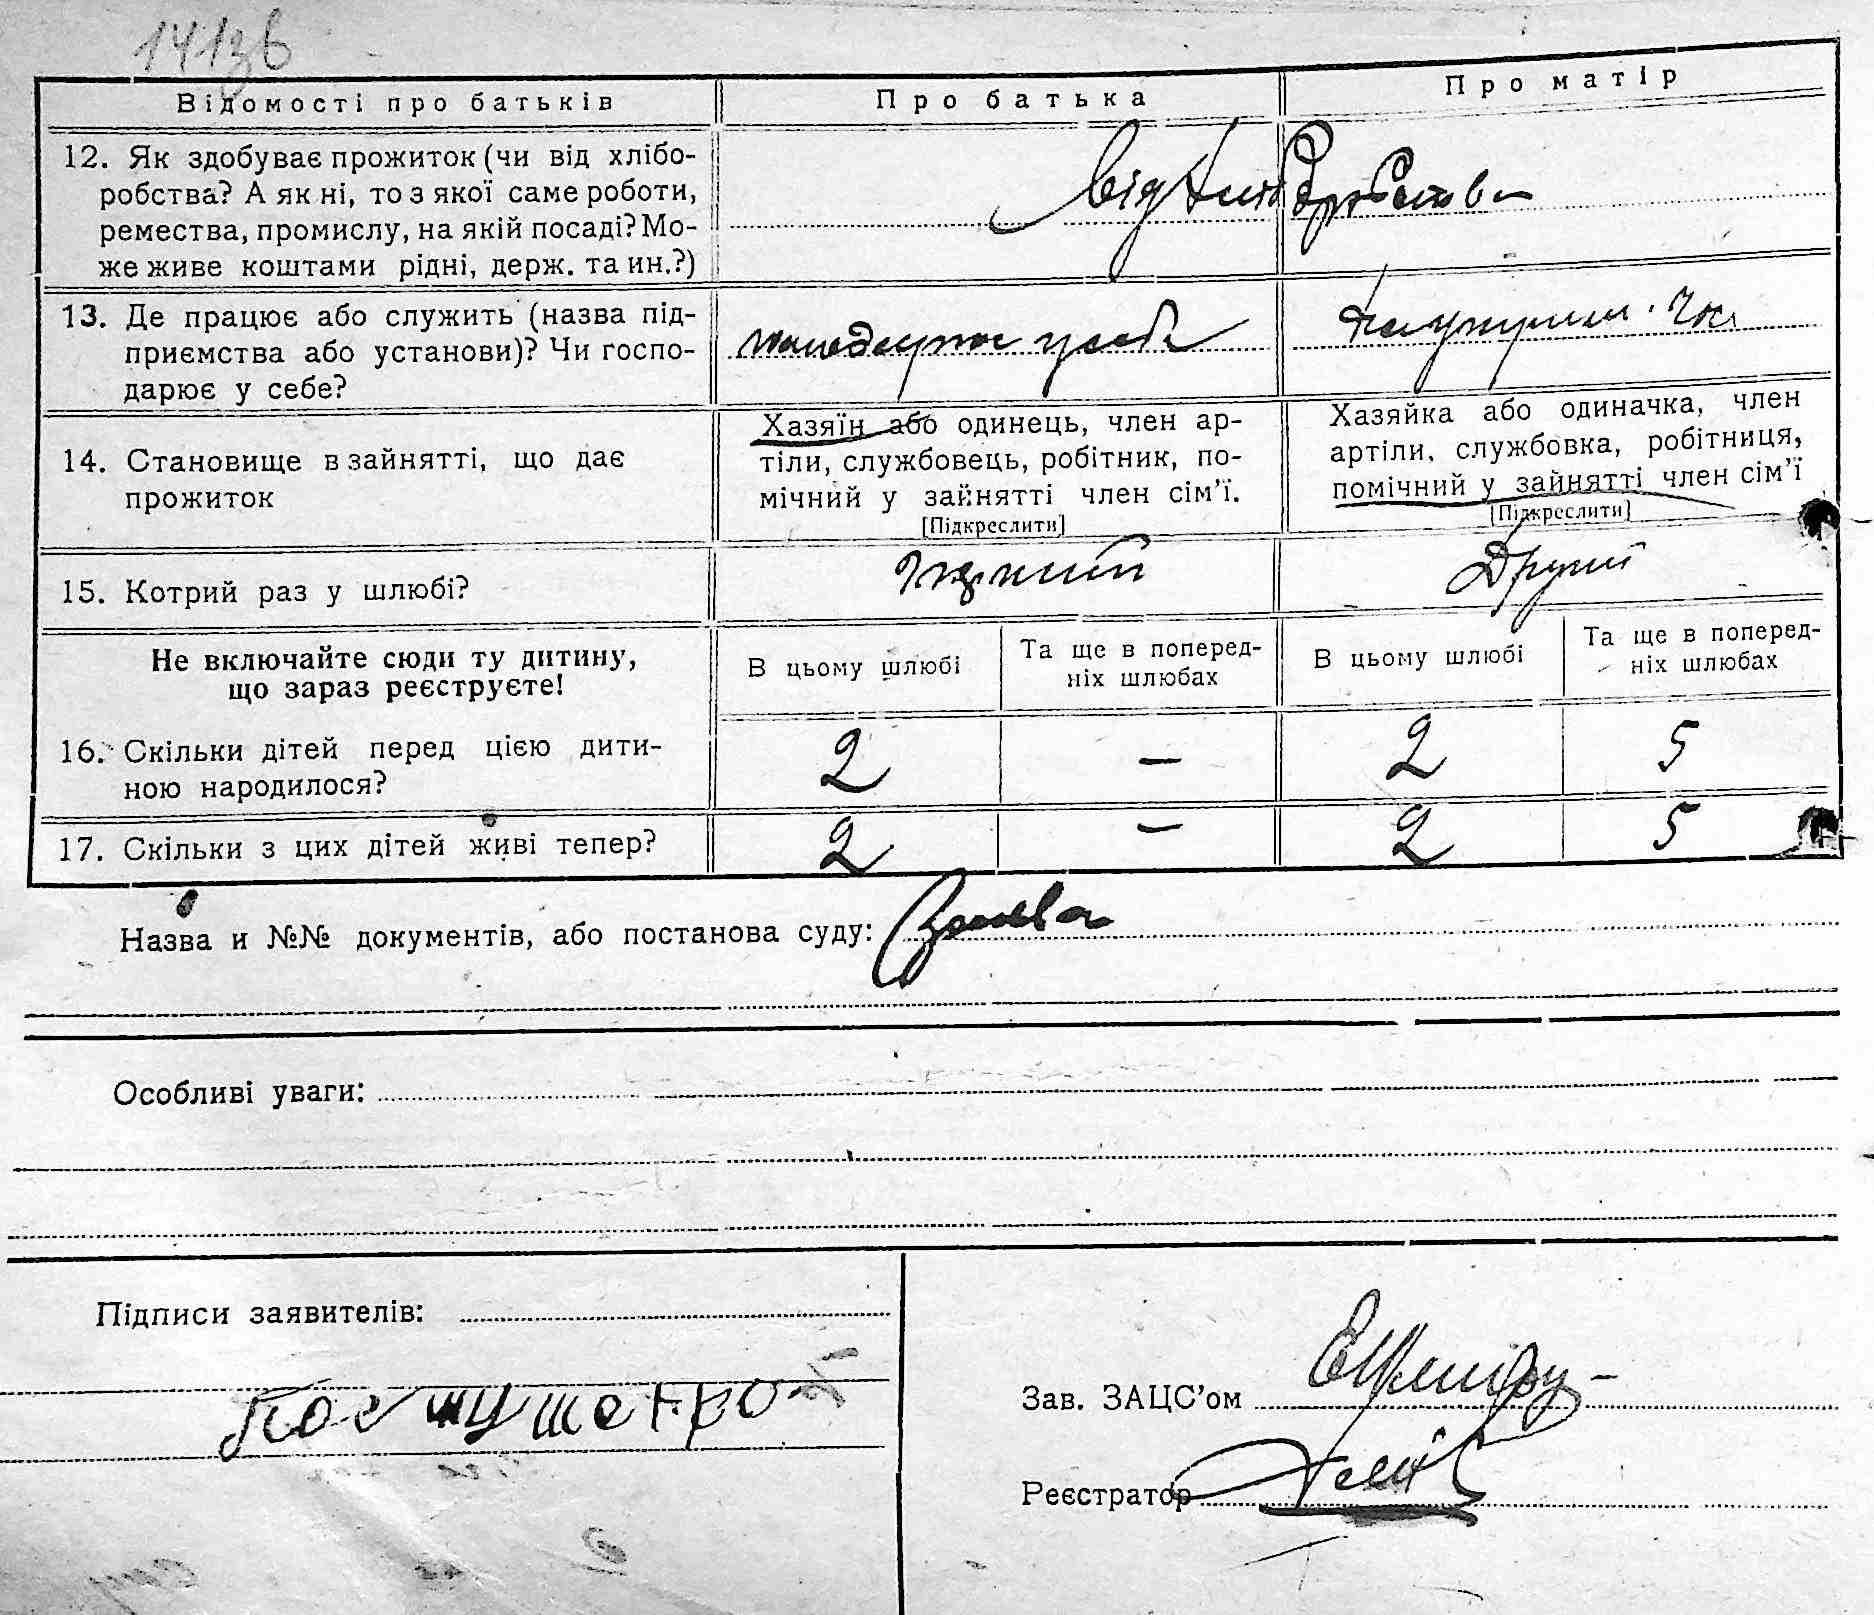 141зв
Відомості про батьків
Про батька
Про матір
12. Як здобуває прожиток (чи від хлібо-
робства? А як ні, то з якої саме роботи,
ремества, промислу, на якій посаді? Мо-
же живе коштами рідні, держ. та ин.?)
від хліборобства
13. Де працює або служить (назва під-
приємства або установи)? Чи госпо-
дарює у себе?
14. Становище в зайнятті, що дає
прожиток
Хазяїн або одинець, член ар-
тіли, службовець, робітник, по-
мічний у зайнятті член сім’ї.
[Підкреслити]
Хазяйка або одиначка, член
артіли, службовка, робітниця,
помічний у зайнятті член сім’ї
[Підкреслити]
15. Котрий раз у шлюбі?
перший
Другий
Не включайте сюди ту дитину,
що зараз реєструєте!
В цьому шлюбі
Та ще в поперед-
ніх шлюбах
В цьому шлюбі
Та ще в поперед-
ніх шлюбах
16. Скільки дітей перед цією дити-
ною народилося?
2 — 2 5
17. Скільки з цих дітей живі тепер?
2 — 2 5
Назва и №№ документів, або постанова суду: Заява
Особливі уваги:
Підписи заявителів:
Зав. ЗАЦС’ом
Реєстратор